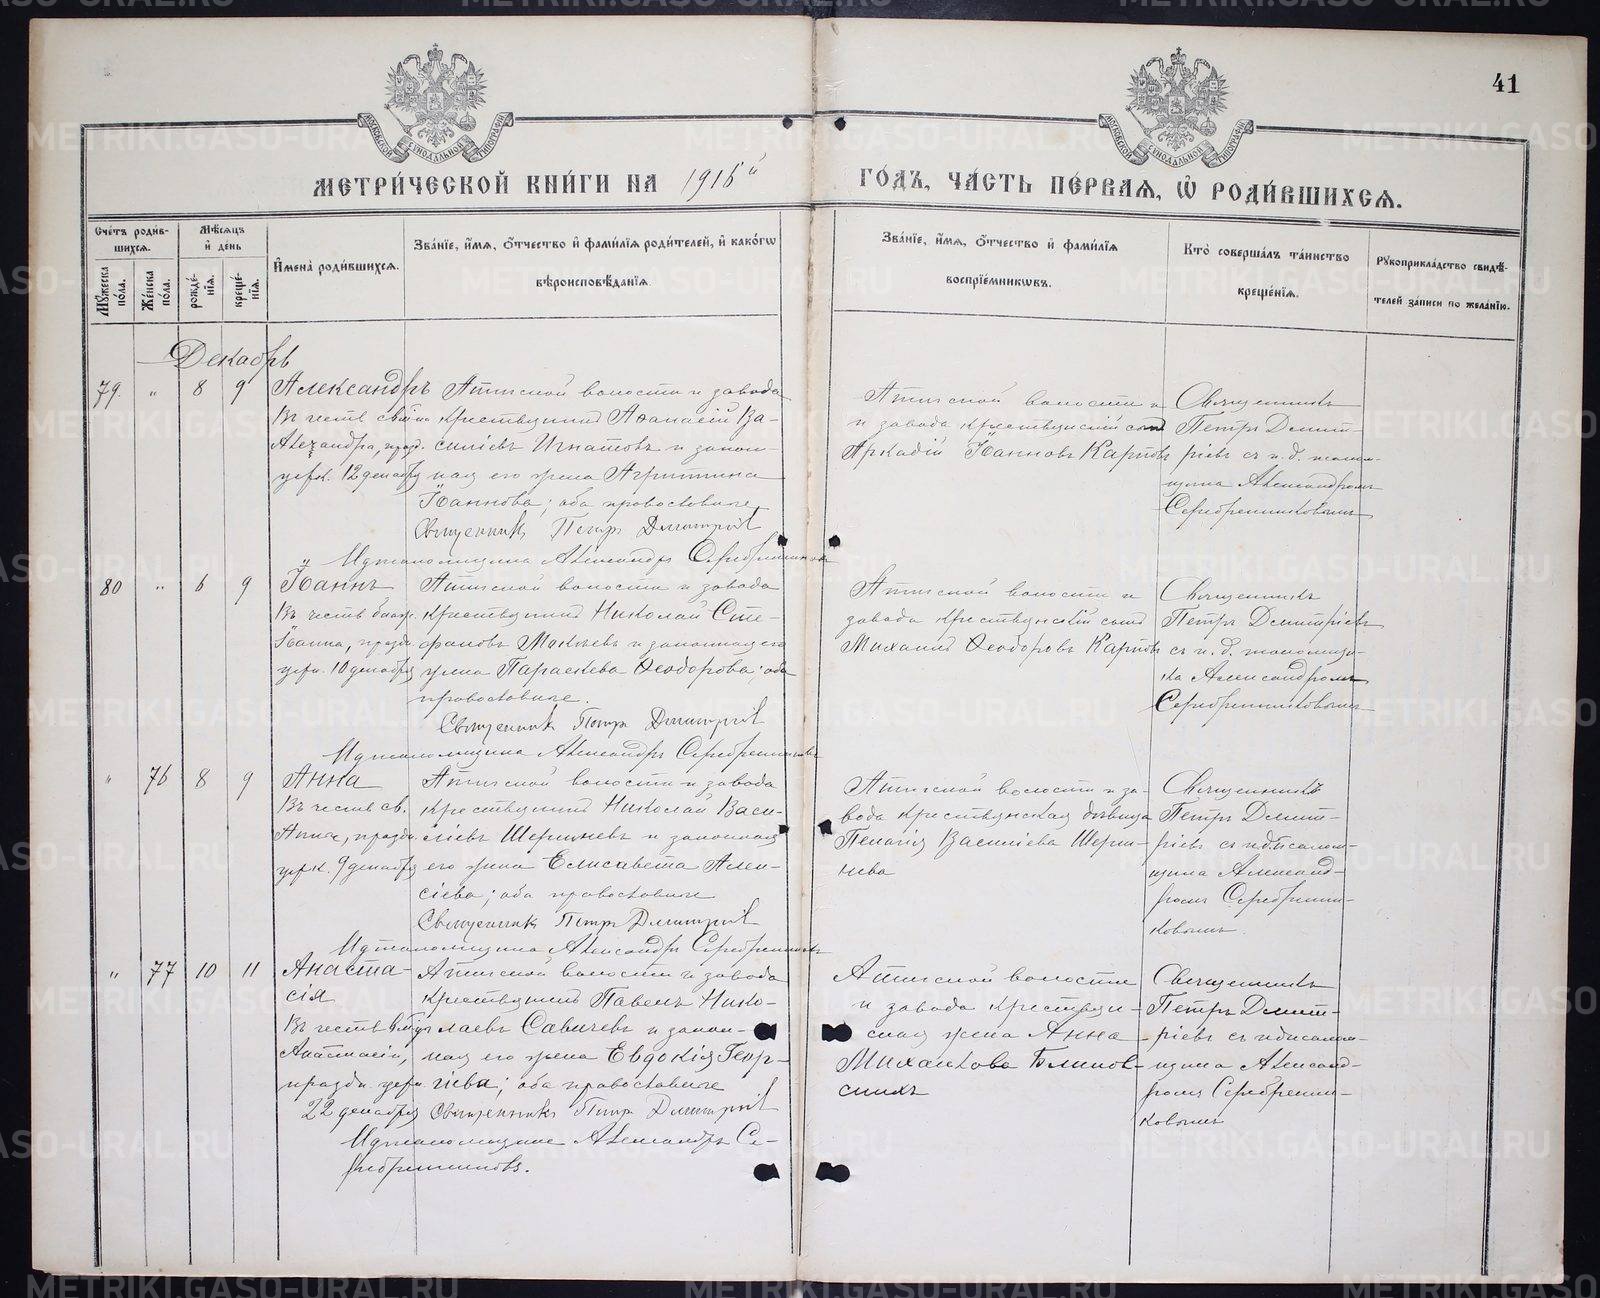 41
МОСКОВСКОЙ СѴНОДАЛЬНОЙ ТИПОГРАФІИ
МОСКОВСКОЙ СѴНОДАЛЬНОЙ ТИПОГРАФІИ
МЕТРИ́ЧЕСКОЙ КНИ́ГИ НА 1916й ГО́ДЪ, ЧА́СТЬ ПЕ́РВАѦ, Ѡ҆ РОДИ́ВШИХСѦ.
Сче́тъ роди́в-
шихсѧ.
Мꙋ́жеска по́ла.
Же́нска по́ла.
Мѣ́сѧцъ
и҆ де́нь
рожде́-
нїѧ.
креще́-
нїѧ.
И҆мена̀ роди́вшихсѧ.
Зва́нїе, и҆́мѧ, ѻ҆́тчество и҆ фами́лїѧ роди́телей, и҆ како́гѡ
вѣроисповѣ́данїѧ.
Зва́нїе, и҆́мѧ, ѻ҆́тчество и҆ фами́лїѧ
воспрїе́мникѡвъ.
Кто̀ соверша́лъ та́инство
креще́нїѧ.
Рꙋкоприкла́дство свидѣ́-
телей за́писи по жела́нїю.
Декабрь
79. " 8 9 Александръ
Въ честь
Александра, празд.
церк. 12 декабря
Атигской волости и завода
крестьянинъ Аѳанасій Ва-
сильевъ Игнатовъ и закон-
ная его жена Агриппина
Іоаннова; оба православные
Священникъ Петръ Димитріевъ
И.д. псаломщика Александръ Серебренниковъ
Атигской волости и
и завода крестьянскій сынъ
Аркадій Іоанновъ Карповъ
Священникъ
Петръ Димит-
ріевъ съ и.д. псалом-
щика Александромъ
Серебренниковымъ
80 " 6 9 Іоаннъ
Въ честь
Іоанна, праздн.
церк. 10 декабря
Атигской волости и завода
крестьянинъ Николай Сте-
фановъ и законная его
жена Параскева Ѳеодорова; оба
православные.
Священникъ Петръ Димитріевъ
И.д. псаломщика Александръ Серебренниковъ
Атигской волости и
завода крестьянскій сынъ
Михаилъ Ѳеодоровъ Карповъ
Священникъ
Петръ Димитріевъ
съ и.д. псаломщи-
ка Александромъ
Серебренниковымъ
" 76 8 9 Анна
Въ честь св.
Анны, праздн.
церк. 9 декабря
Атигской волости и завода
крестьянинъ Николай Васи-
льевъ и законная
его жена Елисавета Алек-
сіева; оба православные
Священникъ Петръ Димитріевъ
И.д. псаломщика Александръ Серебренниковъ
Атигской волости и за-
вода крестьянская дѣвица
Пелагія Васильева
нева
Священникъ
Петръ Димит-
ріевъ съ и.д. псалом-
щика Александ-
ромъ Серебренни-
ковымъ.
" 77 10 11 Анаста-
сія
Въ честь
Анастасіи,
праздн. церк.
22 декабря
Атигской волости и завода
крестьянинъ Павелъ Нико-
лаевъ Савичевъ и закон-
ная его жена Евдокія Геор-
гіева; оба православные
Священникъ Петръ Димитріевъ
И.д. псаломщика Александръ Се-
ребренниковъ.
Атигской волости
и завода крестьян-
ская жена Анна
Михайлова Блинов-
скихъ
Священникъ
Петръ Димит-
ріевъ съ и.д. псалом-
щика Александ-
ромъ Серебренни-
ковымъ
METRIKI.GASO-URAL.RU